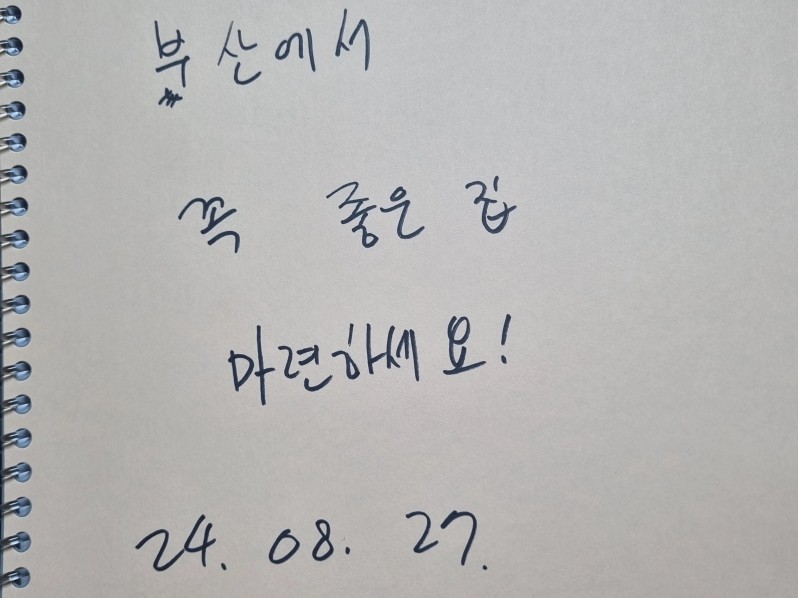 부산에서
꼭 좋은 집
마련하세요!
24. 08. 27.